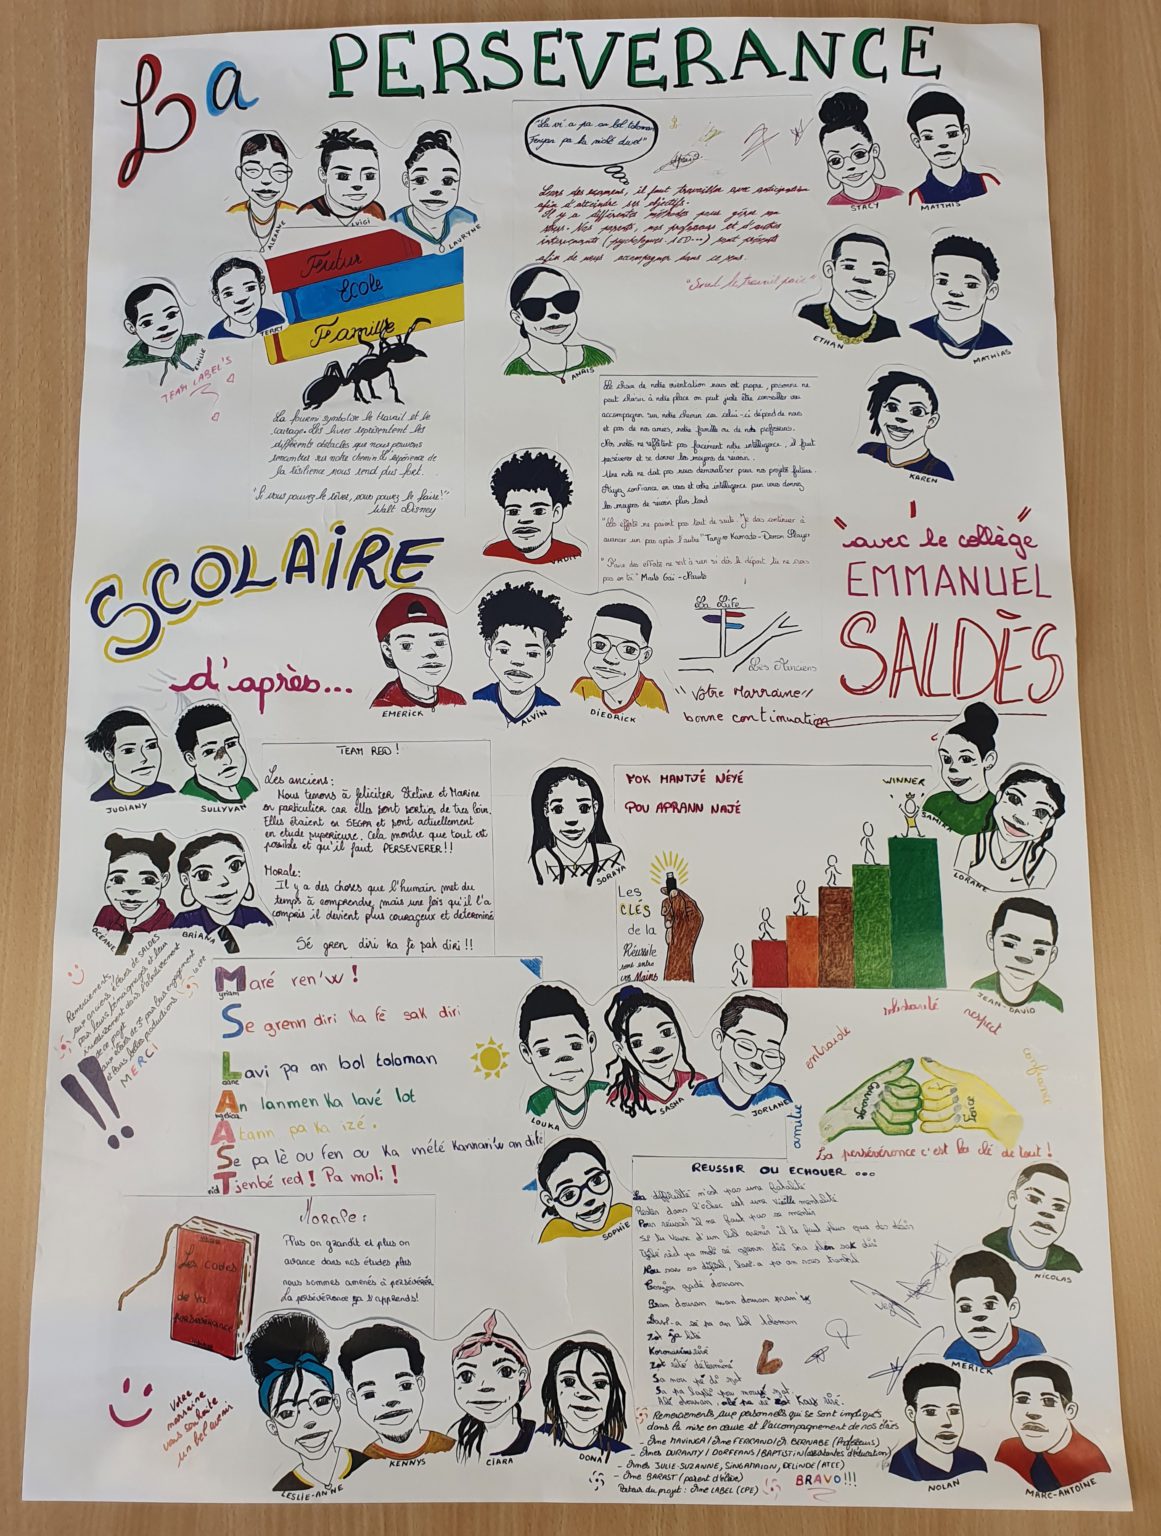 La PERSEVERANCE
ALEXANE
LUIGI
LAURYNE
EMILIE
TERRY
TEAM LABEL'S
Futur
Ecole
Famille
La fourmi symbolise le travail et le
courage. Les livres représentent les
différents obstacles que nous pouvons
rencontrer sur notre chemin
la résilience nous rend plus fort.
"Si vous pouvez le rêver, vous pouvez le faire!"
Walt Disney
"La vi a pa an bol toloman
Lors des examens, il faut travailler avec anticipation
afin d'atteindre ses objectifs.
Il y a différentes méthodes pour gérer son
stress. Nos parents, nos professeurs et d'autres
intervenants (psychologues. IED...) sont présents
afin de nous accompagner dans ce sens.
"Seul le travail paie"
STACY
MATTHIS
ETHAN
MATHIAS
KAREN
ANAIS
Le choix de notre orientation nous est propre, personne ne
peut choisir à notre place on peut juste être conseiller ou
accompagner sur notre chemin car celui-ci dépend de nous
et pas de nos amies, notre famille ou de nos professeurs.
Nos notes ne reflètent pas forcément notre intelligence, il faut
persévérer et se donner les moyens de réussir.
Une note ne doit pas nous démoraliser pour nos projets futurs.
Ayez confiance en vous et votre intelligence pour vous donner
les moyens de réussir plus tard
"Les efforts ne paient pas tout de suite. Je dois continuer à
avancer un pas après l'autre" Tanjiro Kamado-Demon Slayer
"Faire des efforts ne sert à rien si dès le départ tu ne crois
pas en toi" Maito Gaï-Naruto
SCOLAIRE
d'après...
"avec le collège
EMMANUEL
SALDÈS
EMERICK
ALVIN
DIEDRICK
La Life
Les Anciens
"Votre Marraine"
bonne continuation
JUDIANY
SULLYVAN
OCÉANE
BRIANA
TEAM RED!
Les anciens:
Nous tenons à féliciter Steline et Marine
en particulier car elles sont sortie de tres loin.
Elles étaient en SEGPA et sont actuellement
en etude superieure. Cela montre que tout est
possible et qu'il faut PERSEVERER!!
Morale:
Il y a des choses que l'humain met du
temps à comprendre, mais une fois qu'il l'a
compris il devient plus courageux et determiné
Sé gren diri ka fè sak diri!!
SORAYA
FOK MANTJÉ NÉYÉ
POU APRANN NAJÉ
WINNER
Les
CLÉS
de la
Réussite
sont entre
vos Mains
SAMIRA
LORANE
JEAN-DAVID
Remerciements
aux anciens élèves de SALDES
pour leurs témoignages et leur
investissement dans l'aboutissement
de ce projet
aux élèves de 3e pour leur engagement
et leurs belles productions
MERCI
!!
Maré ren'w!
Se grenn diri ka fè sak diri
Lavi pa an bol toloman
An lanmen ka lavé lot
Atann pa ka izé.
Se pa lè ou fen ou ka mété kannari'w an difé
Tjenbé red! Pa moli!
LOUKA
SASHA
JORLANE
SOPHIE
solidarité
respect
entraide
confiance
amitié
Courage
Force
La persévérance c'est la clé de tout!
Les codes
de la
PERSEVERANCE
MORALE:
Plus on grandit et plus on
avance dans nos études plus
nous sommes amenés à persévérer
La persévérence ça s'apprends!
REUSSIR OU ECHOUER...
La difficulté n'est pas une fatalité
Rester dans l'échec est une vieille mentalité
Pour réussir il ne faut pas se mentir
Si tu veux d'un bel avenir il te faut plus que des désirs
NICOLAS
MERICK
NOLAN
MARC-ANTOINE
Votre
marraine
vous souhaite
un bel avenir
LESLIE-ANNE
KENNYS
CIARA
DONA
Remerciements aux personnels qui se sont impliqués
dans la mise en œuvre et l'accompagnement de nos élèves
- Mme MAVINGA/Mme FERRAND/M BERNABE (Professeurs)
- Mmes DURANTY/DORFEANS/BAPTISTIN (assistantes d'éducation)
- Mmes JULIE-SUZANNE, SINGAMALON, DELINDE (ATCE)
- Mme BARAST (parent d'élève)
Porteur du projet: Mme LABEL (CPE)
BRAVO!!!